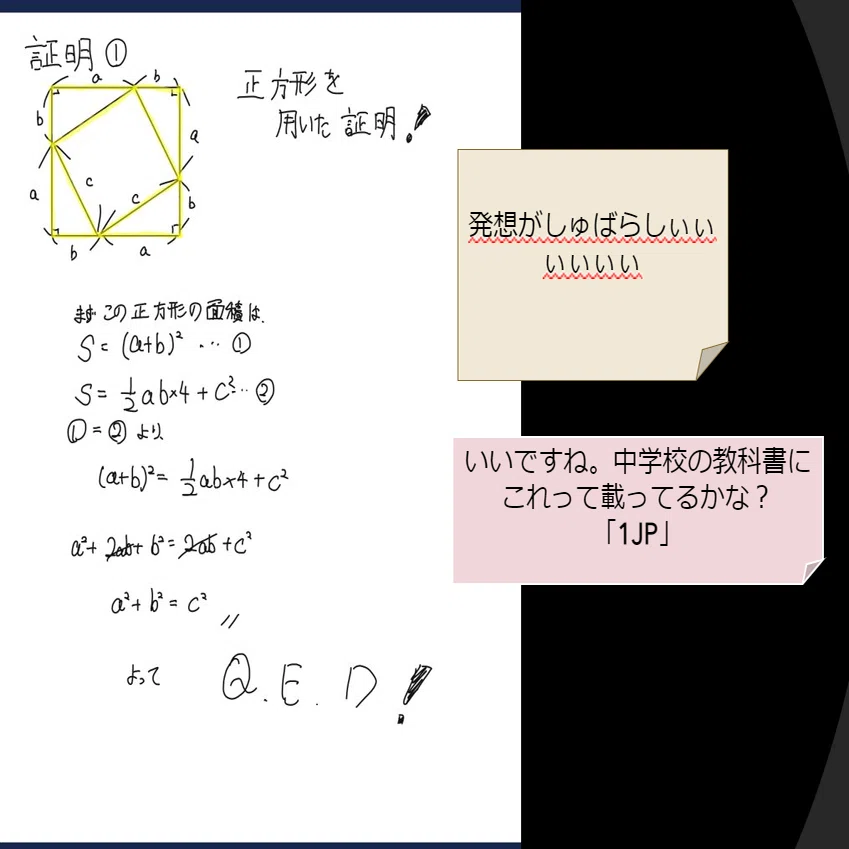 証明①
a
b
b
a
a
c
c
b
b
a
正方形を
用いた証明!
まずこの正方形の面積は、
S = (a+b)² … ①
S = 1/2 ab×4 + c² … ②
①=②より
(a+b)² = 1/2 ab×4 + c²
a² + 2ab + b² = 2ab + c²
a² + b² = c² //
よって Q.E.D!
発想がしゅばらしぃぃ
ぃぃぃぃ
いいですね。中学校の教科書に
これって載ってるかな?
「1JP」